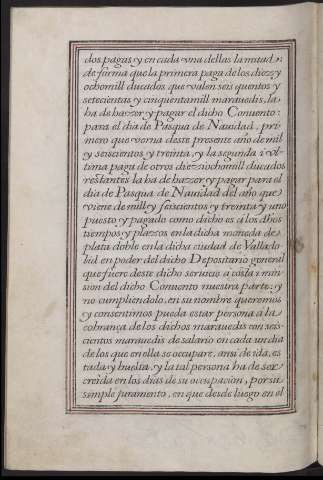 dos pagas y en cada vna dellas la mitad
de forma que la primera paga de los diez y
ochomill ducados que valen seis quentos y
setecientas y cinquentamill marauedis, la
ha de hazzer y pagar el dicho Conuento
para el dia de Pasqua de Nauidad, pri-
mero que verna deste presente año de mil
y seiscientos y treinta, y la segunda i vl-
tima paga de otros diez iochomill ducados
restantes la ha de hazzer y pagar para el
dia de Pasqua de Nauidad del año que
viene de mill y seiscientos y treinta y uno
puesto, y pagado como dicho es a los dhõs
tiempos y plazzos en la dicha moneda de
plata doble en la dicha ciudad de Vallado-
lid en poder del dicho Depositario general
que fuere deste dicho seruicio a costa i min-
sion del dicho Conuento nuestra parte: y
no cumpliendolo, en su nombre queremos
y consentimos pueda estar persona a la
cobrança de los dichos marauedis con seis-
cientos marauedis de salario en cada un dia
de los que en ella se occupare, ansi de ida, es-
tada, y buelta, y la tal persona ha de ser
creida en los dias de su occupacion, por su
simple juramento, en que desde luego en el